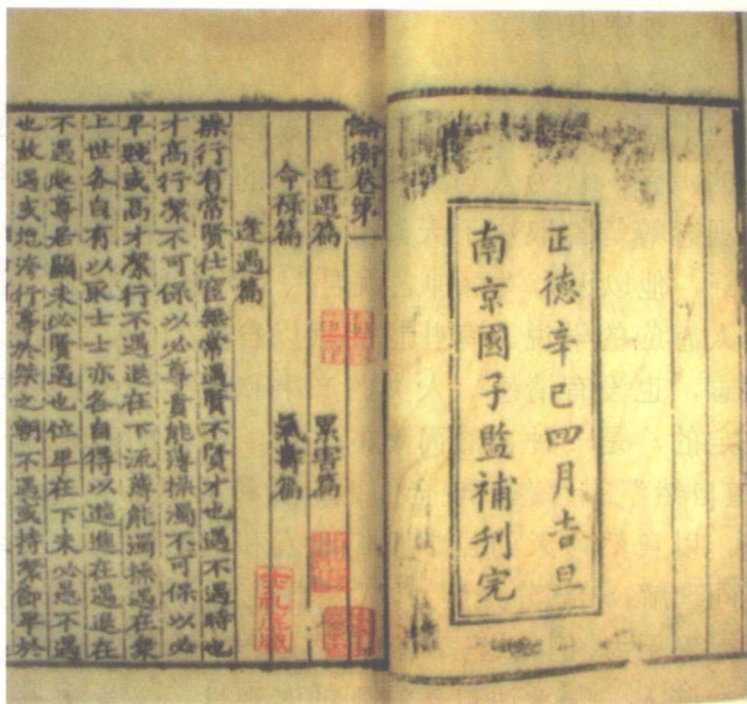 正德辛巳四月吉旦
南京國子監補刊完
論衡卷第一
逢遇篇　累害篇
命祿篇　氣壽篇
逢遇篇
操行有常賢仕宦無常遇賢不賢才也遇不遇時也
才高行潔不可保以必尊貴能薄操濁不可保以必
卑賤或高才潔行不遇退在下流薄能濁操遇在衆
上世各自有以取士士亦各自得以進進在遇退在
不遇處尊居顯未必賢遇也位卑在下未必愚不遇
也故遇或抱洿行尊於桀之朝不遇或持潔節卑於